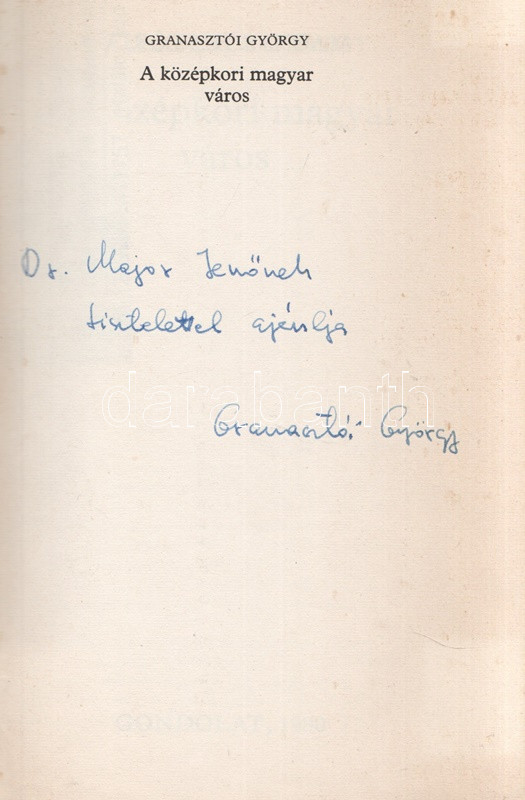 GRANASZTÓI GYÖRGY
A középkori magyar
város
Dr. Major Jenőnek
tisztelettel ajánlja
darabanth
Granasztói György
GONDOLAT